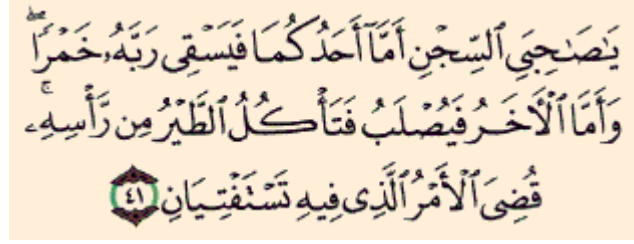 يَٰصَىٰحِبَيِ ٱلسِّجْنِ أَمَّآ أَحَدُكُمَا فَيَسْقِى رَبَّهُۥ خَمْرًا ۖ
وَأَمَّا ٱلْأَخَرُ فَيُصْلَبُ فَتَأْكُلُ ٱلطَّيْرُ مِن رَّأْسِهِۦ ۚ
قُضِىَ ٱلْأَمْرُ ٱلَّذِى فِيهِ تَسْتَفْتِيَانِ ٤١